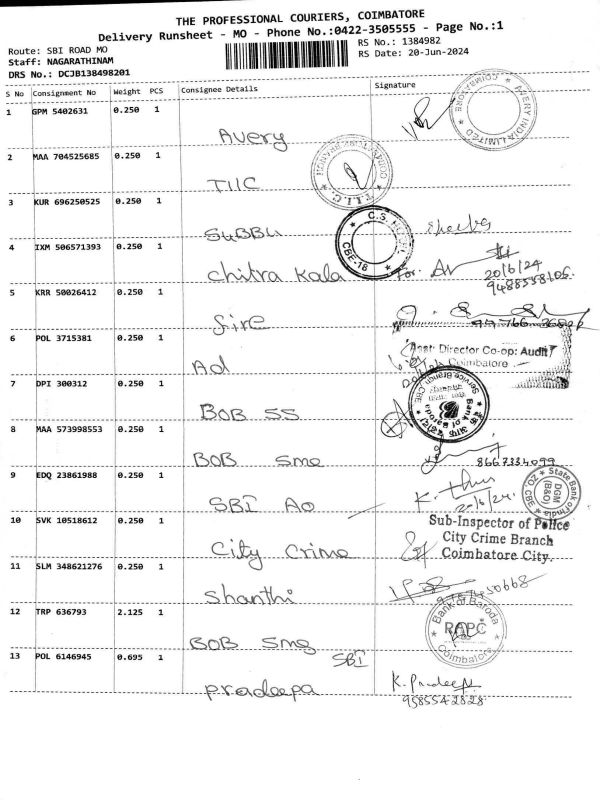 THE PROFESSIONAL COURIERS, COIMBATORE
Delivery Runsheet - MO - Phone No.:0422-3505555 - Page No.:1
Route: SBI ROAD MO
RS No.: 1384982
Staff: NAGARATHINAM
RS Date: 20-Jun-2024
DRS No.: DCJB138498201
S No Consignment No Weight PCS Consignee Details Signature
1 GPM 5402631 0.250 1
Avery
AVERY INDIA LIMITED ★ COIMBATORE ★
2 MAA 704525685 0.250 1
TIIC
T.I.I.C.
3 KUR 696250525 0.250 1
SUBBU
CBE-18
4 IXM 506571393 0.250 1
Chitra Kala
For.
20/6/24
9488558106
5 KRR 50026412 0.250 1
fire
6 POL 3715381 0.250 1
Ad
Asst: Director Co-op: Audit
Coimbatore
7 DPI 300312 0.250 1
BOB SS
Bank of Baroda
Service Branch, CBE
8 MAA 573998553 0.250 1
BOB Sme
8667334099
9 EDQ 23861988 0.250 1
SBI Ao
20/6/24
State Bank of India
DGM
(B&O)
ZO, CBE
10 SVK 10518612 0.250 1
City Crime
Sub-Inspector of Police
City Crime Branch
Coimbatore City.
11 SLM 348621276 0.250 1
Shanthi
12 TRP 636793 2.125 1
BOB Sme
Bank of Baroda
RAPC
Coimbatore
13 POL 6146945 0.695 1
SBI
Pradeepa
K. Pradeepa
9585542828